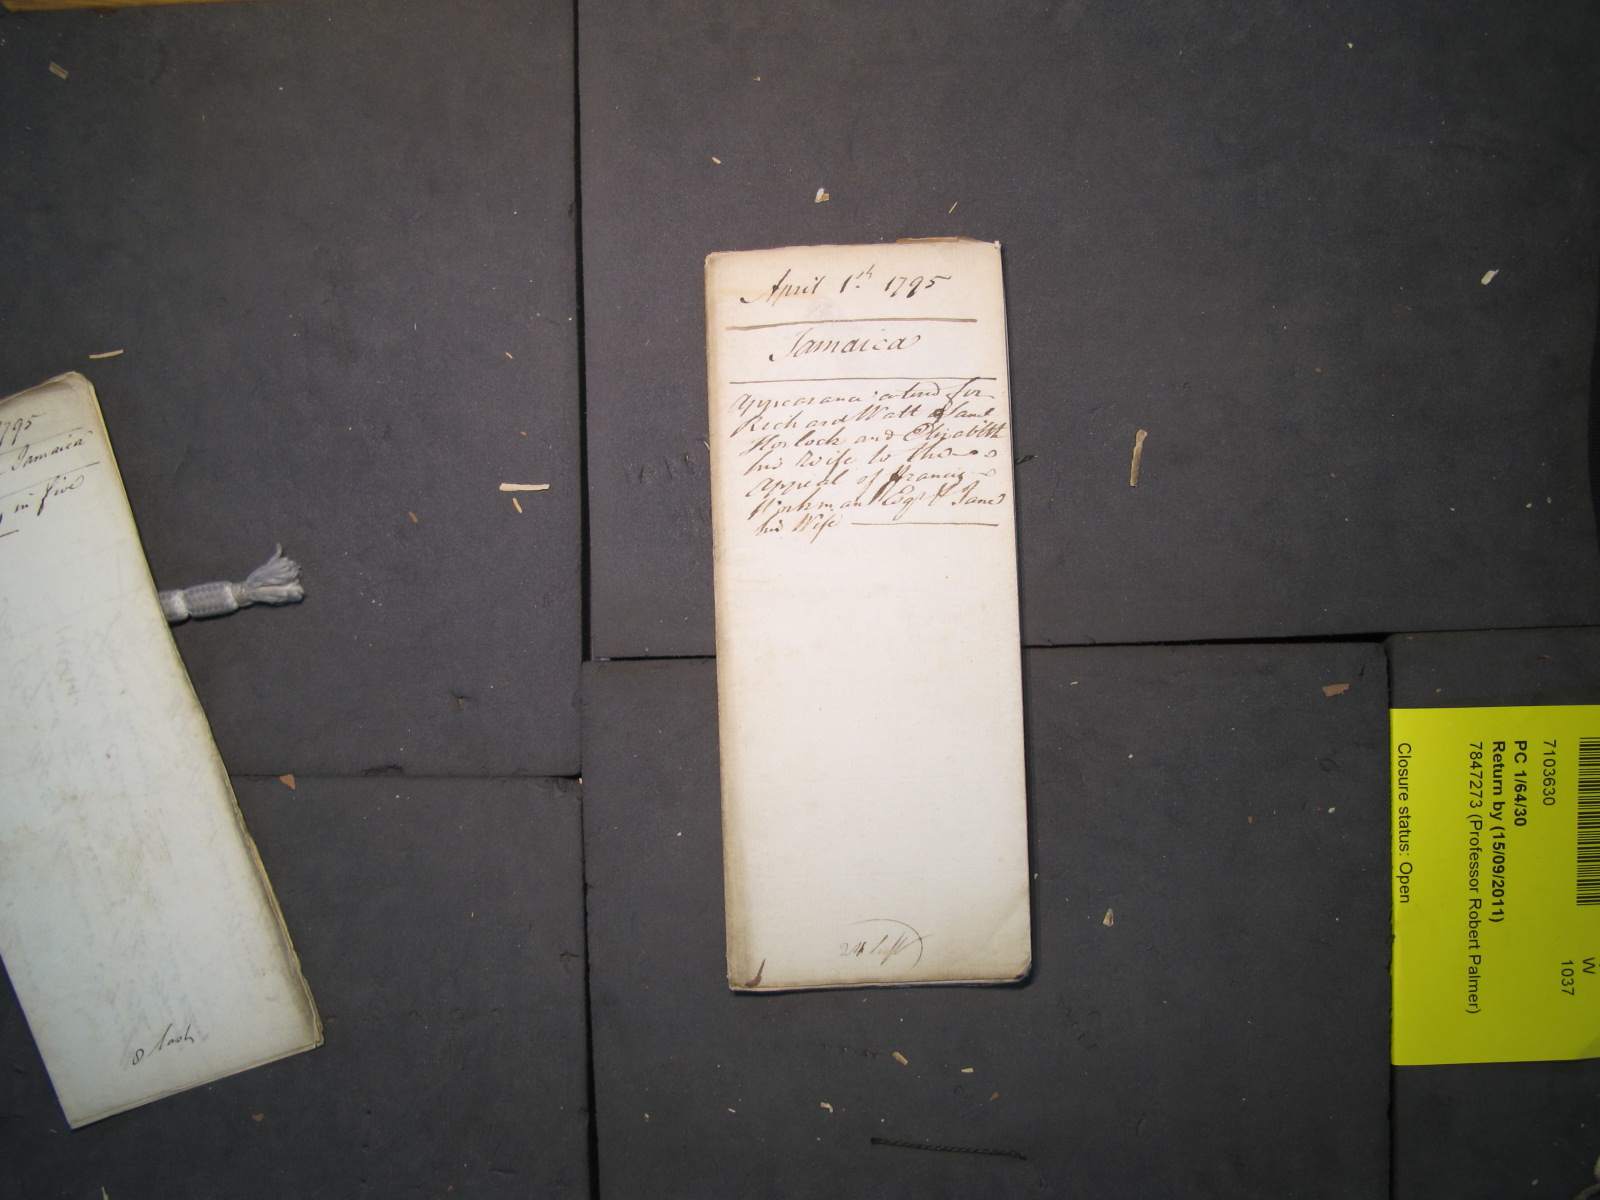 April 1th 1795
Jamaica
Appearance entered for
Richard Watt Isaac
Horlock and Elizabeth
his Wife to the
Appeal of Francis
Workman Esqr & Jane
his Wife
24 left
1795
Jamaica
in five
8 last
7103630
PC 1/64/30
Return by (15/09/2011)
7847273 (Professor Robert Palmer)
Closure status: Open
W
1037